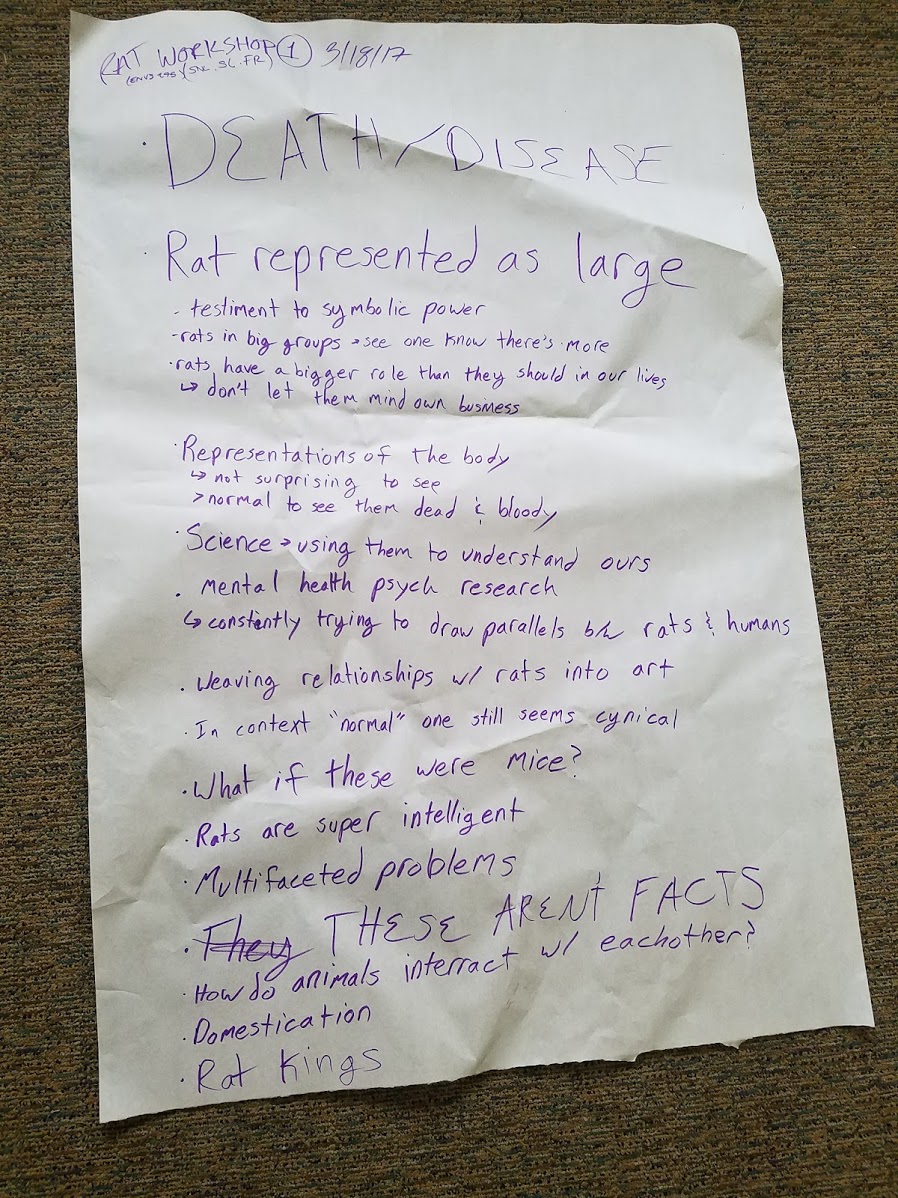 RAT WORKSHOP ① 3/18/17
(SNL.SL.FR)
· DEATH/DISEASE
· Rat represented as large
- testiment to symbolic power
-rats in big groups → see one know there's more
·rats have a bigger role than they should in our lives
↳ don't let them mind own business
·Representations of the body
↳ not surprising to see
>normal to see them dead & bloody
·Science → using them to understand ours
· mental health psych research
↳ constantly trying to draw parallels b/w rats & humans
· Weaving relationships w/ rats into art
· In context "normal" one still seems cynical
·What if these were mice?
·Rats are super intelligent
·Multifaceted problems
· They THESE AREN'T FACTS
·How do animals interract w/ eachother?
·Domestication
·Rat Kings